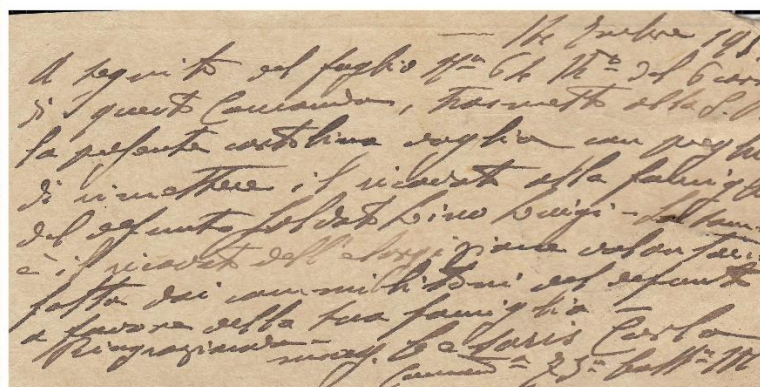 — 14 Embre 191
A seguito del foglio N° 64 del 6 corr
di questo Comando, trasmetto alla S.V.
la presente cartolina vaglia con pregh
di rimettere il ricavato alla famigl
del defunto soldato Lino Luigi - La
è il ricavato dell'elargizione volontaria
fatta dai commilitoni del defunto
a favore della sua famiglia
Ringraziando
Carlo